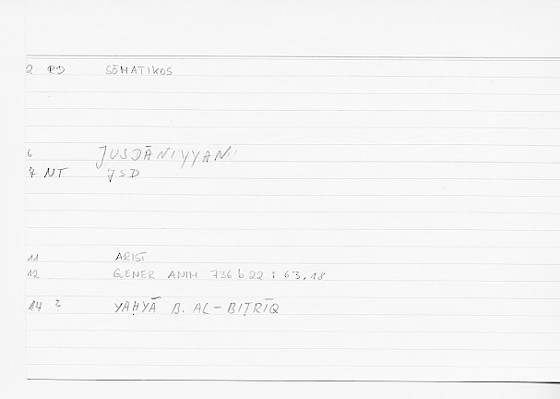 2 RD SŌMATIKOS
6 JUSDĀNIYYAN
7 NT JSD
11 ARIST
12 GENER ANIM 736 b 22 : 63,18
14 ? YAḤYĀ B. AL-BIṬRĪQ